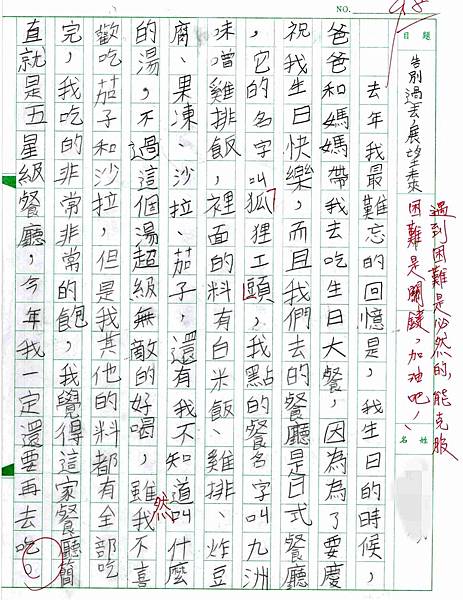 NO.
98
題目
告別過去展望未來
姓名
遇到困難是必然的，能克服
困難是關鍵，加油吧！
去年我最難忘的回憶是，我生日的時候，
爸爸和媽媽帶我去吃生日大餐，因為為了要慶
祝我生日快樂，而且我們去的餐廳是日式餐廳
，它的名字叫狐狸工頭，我點的餐名字叫九洲
味噌雞排飯，裡面的料有白米飯、雞排、炸豆
腐、果凍、沙拉、茄子，還有我不知道叫什麼
的湯，不過這個湯超級無敵的好喝，雖然我不喜
歡吃茄子和沙拉，但是我其他的料都有全部吃
完，我吃的非常非常的飽，我覺得這家餐廳簡
直就是五星級餐廳，今年我一定還要再去吃。